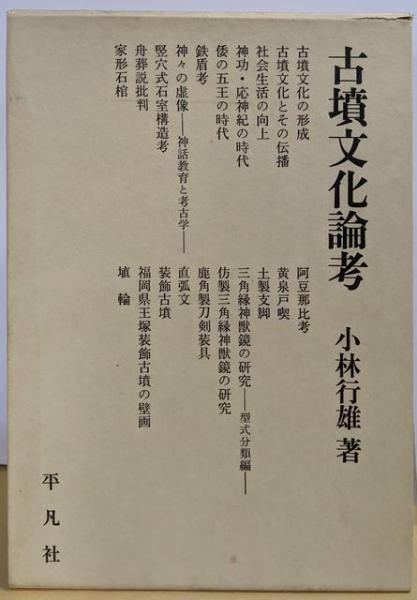 古墳文化論考
小林行雄 著
古墳文化の形成
古墳文化とその伝播
社会生活の向上
神功・応神紀の時代
倭の五王の時代
鉄盾考
神々の虚像——神話教育と考古学——
竪穴式石室構造考
舟葬説批判
家形石棺
阿豆那比考
黄泉戸喫
土製支脚
三角縁神獣鏡の研究——型式分類編——
仿製三角縁神獣鏡の研究
鹿角製刀剣装具
直弧文
装飾古墳
福岡県王塚装飾古墳の壁画
埴輪
平凡社